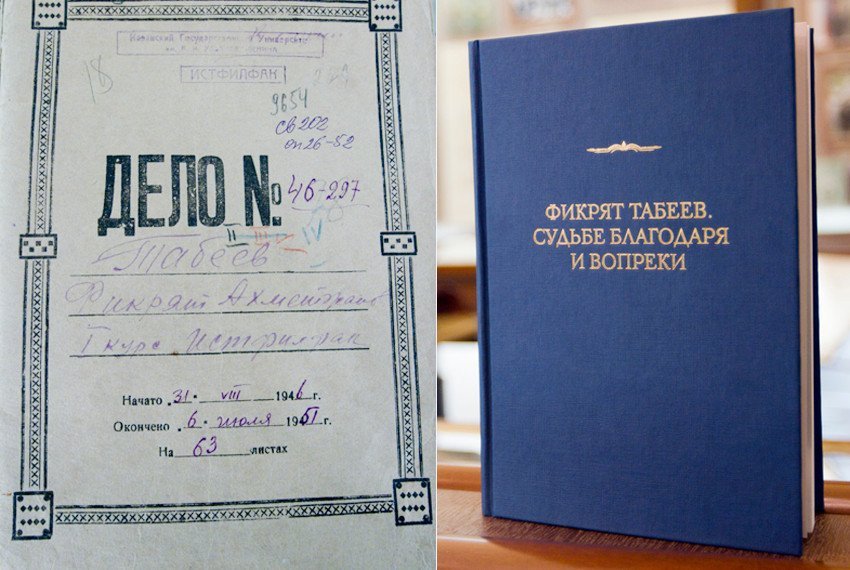 Казанский Государственный Университет
им. В. И. Ульянова-Ленина
ИСТФИЛФАК
18
9654
св 202
оп 26-52
ДЕЛО №
46-297
II III V IV
Табеев
Фикрят Ахметджанов
I курс Истфилфак
Начато 31 VIII 1946 г.
Окончено 6 июля 1951 г.
На 63 листах
ФИКРЯТ ТАБЕЕВ.
СУДЬБЕ БЛАГОДАРЯ
И ВОПРЕКИ